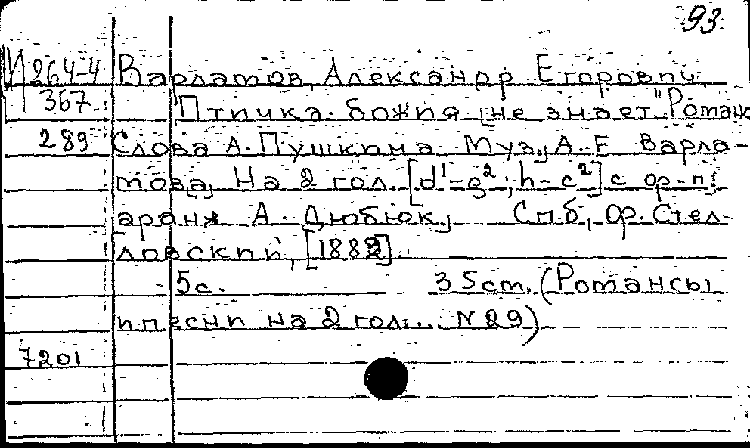 93
И 264-4 Варламов, Александр Егорович
367 "Птичка божия не знает". Романс
289 Слова А. Пушкина. Муз. А. Е. Варла-
мова, На 2 гол. [d¹-g²; h-c²] с ф-п.
аранж А. Дюбюк, Спб, Ф. Стел-
ловский, [1882]
5с. 35cm. (Романсы
и песни на 2 гол... N 29)
7201